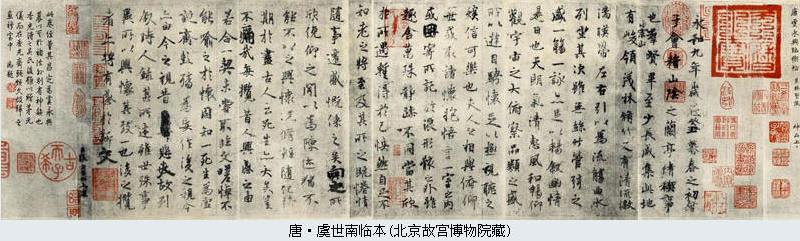 永和九年歲在癸丑暮春之初會
于會稽山陰之蘭亭脩稧事
也羣賢畢至少長咸集此地
有崇山峻領茂林脩竹又有清流激
湍暎帶左右引以為流觴曲水
列坐其次雖無絲竹管弦之
盛一觴一詠亦足以暢敘幽情
是日也天朗氣清惠風和暢仰
觀宇宙之大俯察品類之盛
所以遊目騁懷足以極視聽之
娛信可樂也夫人之相與俯仰
一世或取諸懷抱悟言一室之內
或因寄所託放浪形骸之外雖
趣舍萬殊靜躁不同當其欣
於所遇暫得於己怏然自足不
知老之將至及其所之既惓情
隨事遷感慨係之矣向之所
欣俛仰之間以為陳迹猶不
能不以之興懷況脩短隨化終
期於盡古人云死生亦大矣豈
不痛哉每攬昔人興感之由
若合一契未嘗不臨文嗟悼不
能喻之於懷固知一死生為虛
誕齊彭殤為妄作後之視今
亦由今之視昔悲夫故列
敘時人錄其所述雖世殊事
異所以興懷其致一也後之攬
者亦將有感於斯文
唐·虞世南临本(北京故宫博物院藏)